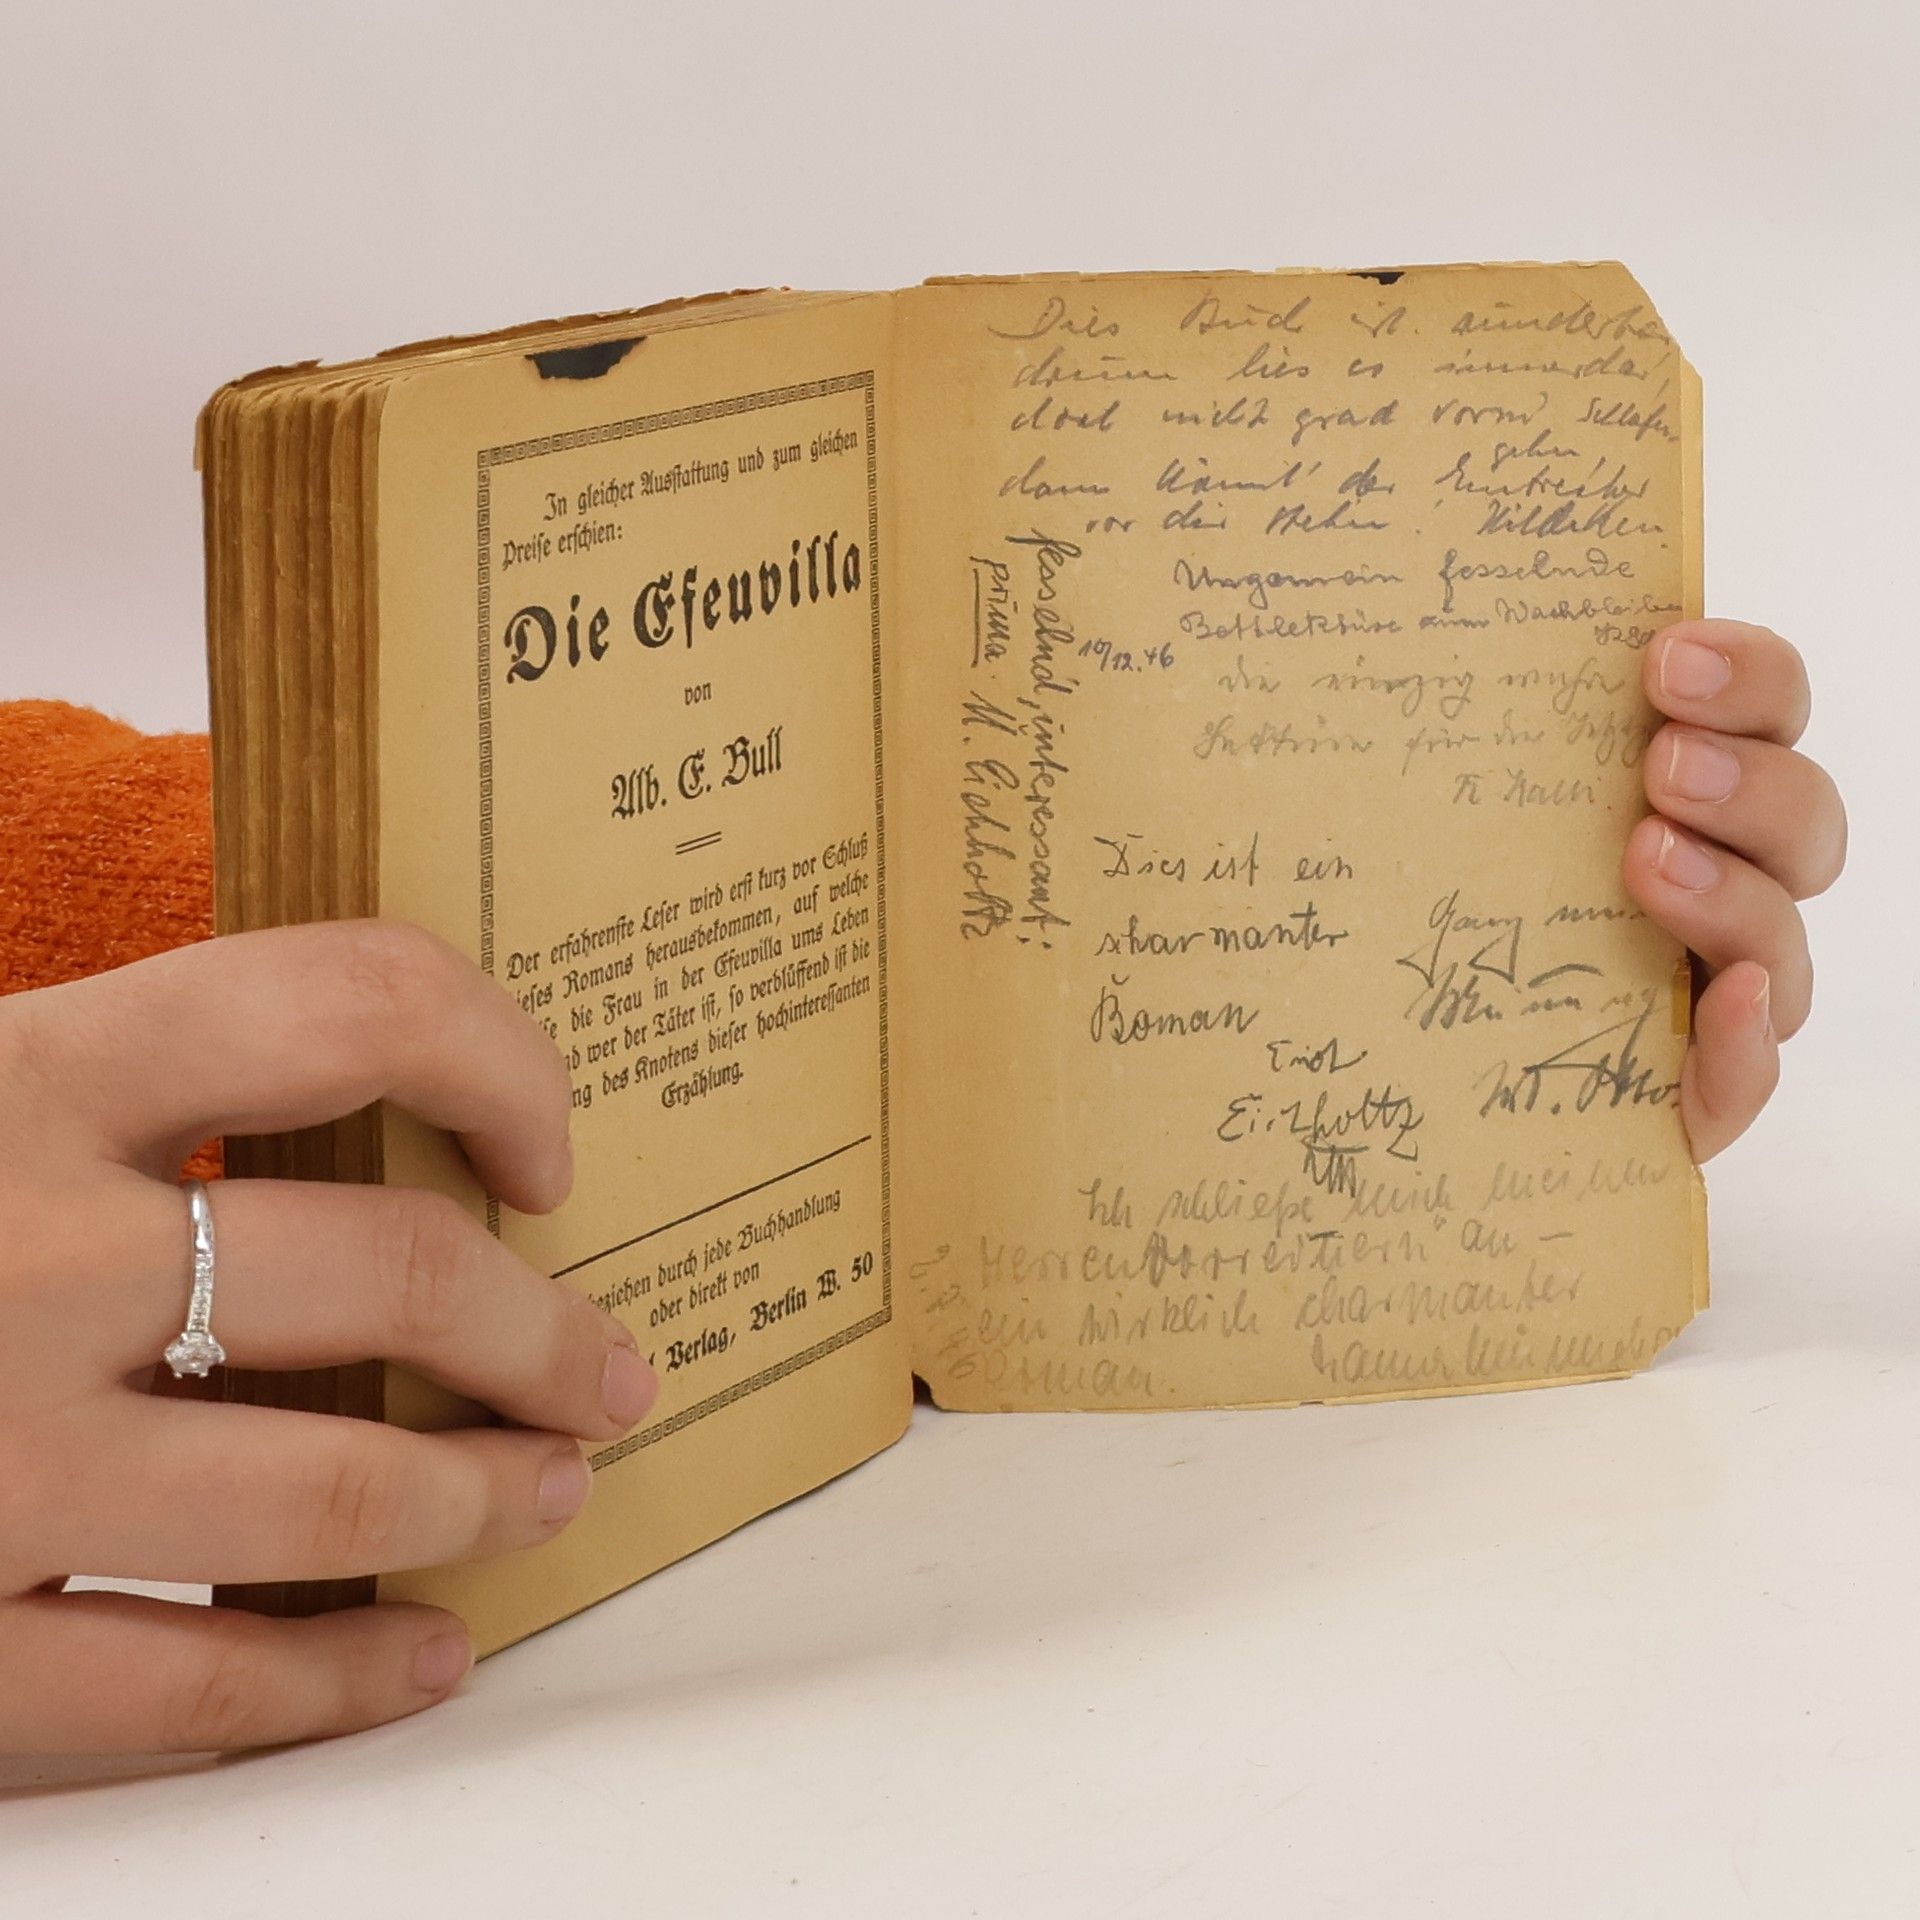 In gleicher Ausstattung und zum gleichen
Preise erschien:
Die Efeuvilla
von
Alb. E. Bull
Der erfahrenste Leser wird erst kurz vor Schluß
dieses Romans herausbekommen, auf welche
die Frau in der Efeuvilla ums Leben
wer der Täter ist, so verblüffend ist die
des Knotens dieser hochinteressanten
Erzählung.
beziehen durch jede Buchhandlung
oder direkt von
Verlag, Berlin W. 50
Dies Buch ist wunderbar
drum lies es immerdar,
doch nicht grad vorm Schlafen-
gehn,
dann kommt der Einbrecher
vor die
Ungemein fesselnde
Bettlektüre zum Wachbleiben
10/12.46
die einzig wahre
Lektüre für die
fesselnd, interessant.
prima. U. Eichholtz
Dies ist ein
scharmanter
Roman
Erich
Eichholtz
Ganz
Ich schließe mich meinen
Herren Vorrednern an –
ein wirklich charmanter
Roman.